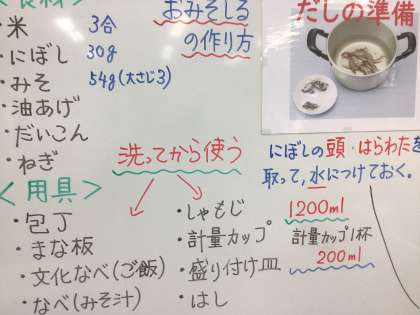 ＜食材＞
・米 3合
・にぼし 30g
・みそ 54g(大さじ3)
・油あげ
・だいこん
・ねぎ
おみそしる
の作り方
だしの準備
にぼしの頭・はらわたを
取って，水につけておく。
1200ml
計量カップ1杯
200ml
洗ってから使う
＜用具＞
・包丁
・まな板
・文化なべ(ご飯)
・なべ(みそ汁)
・しゃもじ
・計量カップ
・盛り付け皿
・はし